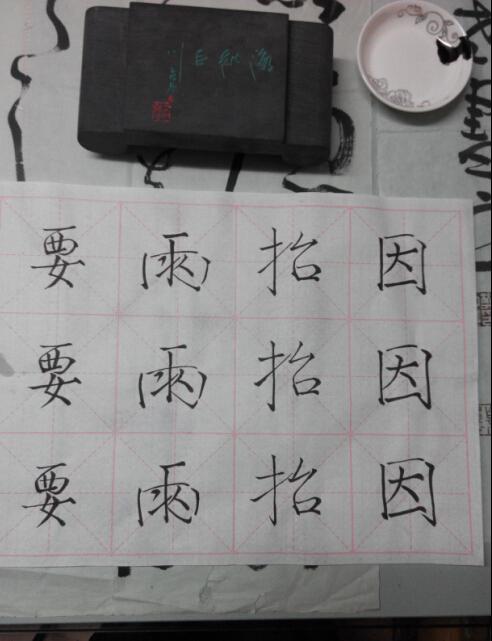 要雨抬因
要雨抬因
要雨抬因